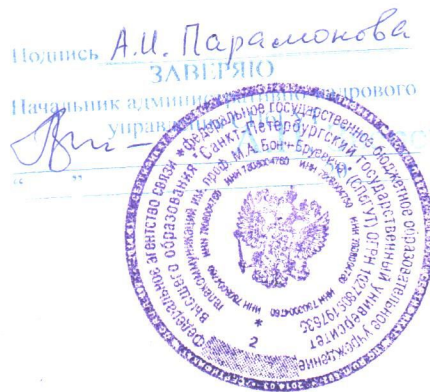 Подпись А.И. Парамонова
ЗАВЕРЯЮ
Начальник административно-кадрового
управления
“ ”
Федеральное агентство связи * федеральное государственное бюджетное образовательное учреждение
высшего образования "Санкт-Петербургский государственный университет
телекоммуникаций им. проф. М.А. Бонч-Бруевича" (СПбГУТ) ОГРН
ИНН 7808004760
* 2